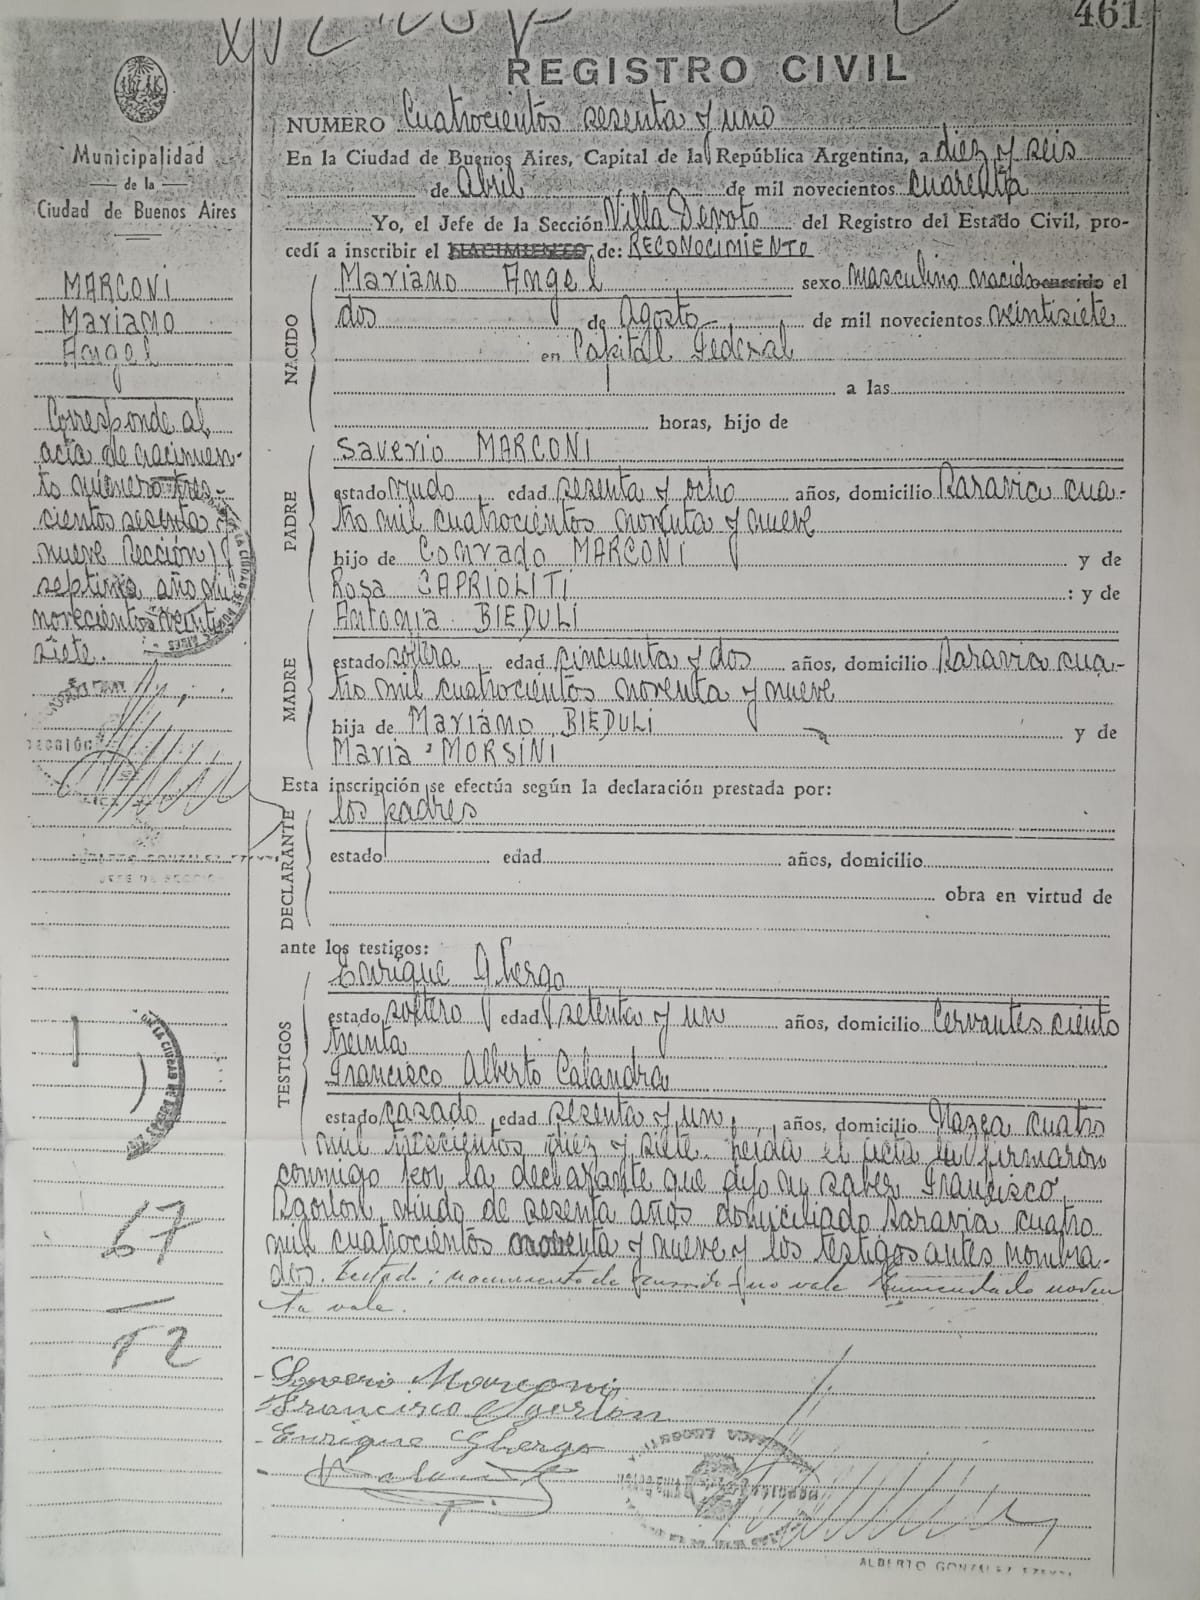 461
REGISTRO CIVIL
Municipalidad
de la
Ciudad de Buenos Aires
MARCONI
Mariano
Angel
Corresponde al
acta de nacimien-
to número tres-
cientos sesenta y
nueve Sección
septima año mil
novecientos veinti
siete.
JEFE DE SECCION
67
52
NUMERO Cuatrocientos sesenta y uno
En la Ciudad de Buenos Aires, Capital de la República Argentina, a diez y seis
de Abril de mil novecientos cuarenta
Yo, el Jefe de la Sección Villa Devoto del Registro del Estado Civil, pro-
cedí a inscribir el NACIMIENTO de: RECONOCIMIENTO
NACIDO
Mariano Angel sexo masculino nacido ocurrido el
dos de Agosto de mil novecientos veintisiete
en Capital Federal
a las
horas, hijo de
PADRE
Saverio MARCONI
estado viudo edad sesenta y ocho años, domicilio Saravia cua-
tro mil cuatrocientos noventa y nueve
hijo de Conrado MARCONI y de
Rosa CAPRIOLITI : y de
MADRE
Antonia BIEDULI
estado soltera edad cincuenta y dos años, domicilio Saravia cua-
tro mil cuatrocientos noventa y nueve
hija de Mariano BIEDULI y de
Maria MORSINI
Esta inscripción se efectúa según la declaración prestada por:
DECLARANTE
los padres
estado edad años, domicilio
obra en virtud de
ante los testigos:
TESTIGOS
Enrique Ghergo
estado soltero edad setenta y un años, domicilio Cervantes ciento
treinta
Francisco Alberto Calandra
estado casado edad sesenta y un años, domicilio Nazca cuatro
mil trescientos diez y siete. Leida el acta la firmaron
conmigo por la declarante que dijo no saber Francisco
viudo de sesenta años domiciliado Saravia cuatro
mil cuatrocientos noventa y nueve y los testigos antes nombra-
dos. Testado: nacimiento de ocurrido no vale Enmendado noven
ta vale.
Saverio Marconi
Francisco
Enrique Ghergo
ALBERTO GONZALEZ